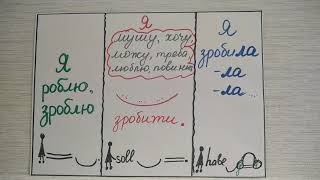 Я
роблю,
зроблю
Я
мушу, хочу,
можу, треба,
люблю, повинна
зробити.
soll
Я
зробила
-ла
-ла...
habe